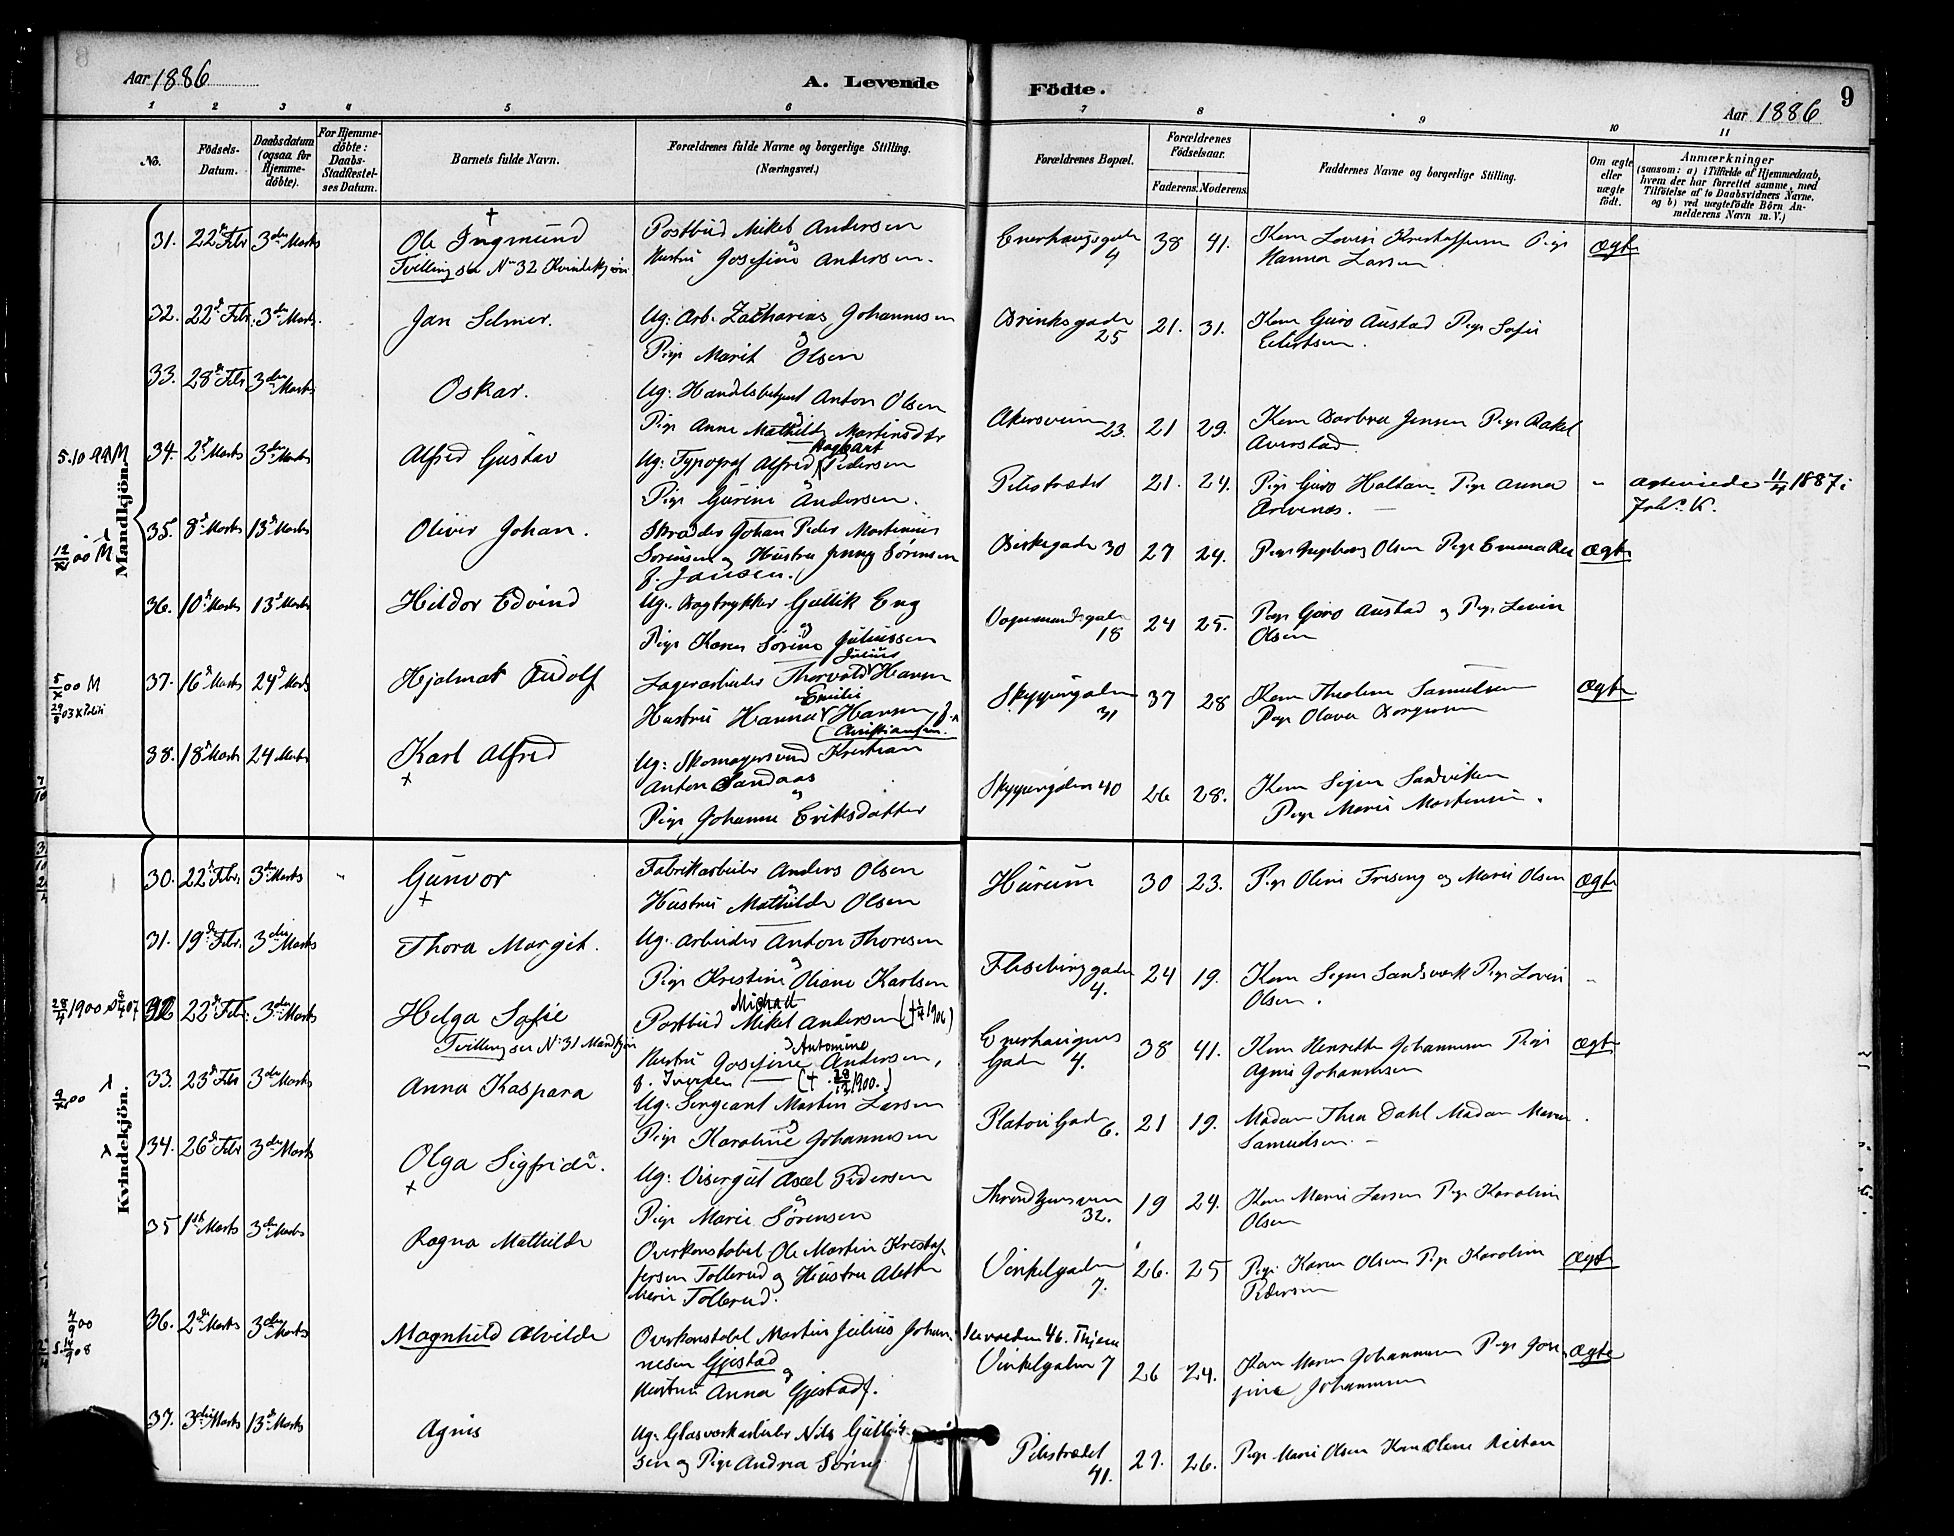 8
Aar 1886
A. Levende
Födte.
9
Aar 1886
1 2 3 4 5 6 7 8 9 10 11
No.
Födsels-Datum.
Daabsdatum (ogsaa for Hjemme-döbte).
For Hjemme-döbte: Daabs-Stadfæstel-ses Datum.
Barnets fulde Navn.
Forældrenes fulde Navne og borgerlige Stilling. (Næringsvei.)
Forældrenes Bopæl.
Forældrenes Födselsaar.
Faderens. Moderens.
Faddernes Navne og borgerlige Stilling.
Om ægte eller uægte födt.
Anmærkninger
(saasom: a) i Tilfælde af Hjemmedaab, hvem der har forrettet samme, med Tilföielse af to Daabsvidners Navne. og b) ved uægtefödte Börn An-melderens Navn m. V.)
Mandkjön.
31. 22d Febr 3die Marts
†
Ole Ingmund
Tvilling se No 32 Kvindekjön
Postbud Mikel Andersen
og
Hustru Josefine Andersen.
Enerhaugsgaden
4
38 41.
Kone Lovise Kristoffersen Pige
Hanna Larsen.
Ægte
32. 22d Febr. 3die Marts.
Jan Selmer.
Ug: Arb. Zacharias Johannesen
og
Pige Marit Olsen
Brinksgade
25
21. 31.
Kone Guro Austad Pige Sofie
Eilertsen.
33. 28d Febr 3die Marts
Oskar.
Ug: Handelsbetjent Anton Olsen
og
Pige Anne Mathilde Martinsdtr
Akersveien
23.
21 29.
Kone Barbra Jensen Pige Rakel
Averstad.
5.10.99 M
34. 2d Marts 3die Marts
Alfred Gustav
Ug: Typograf Alfred Pedersen
og
Pige Gurine Andersen.
Pilestrædet
21. 24.
Pige Guro Holtan Pige Anna
Arvenes. —
" Ægteviede 11/4 1887 i
Joh. K.
12/xi 00 M
35. 8d Marts 13d Marts
Oliver Johan.
Skrædder Johan Peder Martenius
Sörensen og Hustru Jenny Sörensen
f. Jansen.
Birkegade 30
27 24.
Pige Ingeborg Olsen Pige Emma
Ægte
36. 10d Marts 13d Marts
Hildor Edvind
Ug: Bogtrykker Gullik Eng
og
Pige Karen Sörine Juliussen
Vognmandsgade
18
24 25.
Pige Guro Austad og Pige Lovise
Olsen
5/x 00 M
29/8 03 x Politi
37. 16d Marts 24d Marts
Hjalmar Rudolf
Julius
Lagerarbeider Thorvald Hansen
og Emilie
Hustru Hanna Hansen, f.
Christiansen.
Skippergaden
31
37 28
Kone Thealine Samuelsen
Pige Olava Borgersen
Ægte
38. 18d Marts 24 Marts
Karl Alfred
x
Ug: Skomagersvend Kristian
Anton Sandaas
og
Pige Johanne Eriksdatter
Skippergaden 40
26 28.
Kone Signe Sandviken
Pige Marie Mortensen.
Kvindekjön.
30. 22d Febr. 3die Marts "
Gunvor
x
Fabrikarbeider Anders Olsen
og
Hustru Mathilde Olsen
Hurum
30 23.
Pige Oline Freseng og Marie Olsen
Ægte
31. 19d Febr. 3die Marts
Thora Margit.
Ug: Arbeider Anton Thoresen
og
Pige Kristine Oliane Karlsen
4.
24 19.
Kone Signe Sandsværk Pige Lovise
Olsen.
"
28/4 1900
32 22d Febr. 3die Marts
Helga Sofie
Tvilling se No 31 Mandkjön
Michael
Postbud Mikel Andersen († 1906)
og Antomine
Hustru Josefine Andersen,
f. Iversen — († 28/12 1900.)
Enerhaugens
Gade 4.
38 41.
Kone Henrette Johannesen Pige
Agnes Johannesen
Ægte
9/xi 00
33. 23d Febr 3die Marts
Anna Kaspara
Ug: Sergeant Martin Larsen
og
Pige Karoline Johannesen
Platous Gade
6.
21 19.
Madam Thea Dahl Madam Maren
Samuelsen. —
34. 26d Febr 3die Marts
Olga Sigfrida.
x
Ug: Visergut Axel Pedersen
og
Pige Marie Sörensen
Throndhjemsveien
32.
19 24.
Kone Marie Larsen Pige Karoline
Olsen
35 1ste Marts 3die Marts
Ragna Mathilde
Overkonstabel Ole Martin Kristof-
fersen Tollerud og Hustru Alette
Marie Tollerud.
Vinkelgaden
7.
26. 25
Pige Karen Olsen Pige Karoline
Pedersen
Ægte
4/9 00
36. 2d Marts 3die Marts
Magnhild Alvilde
Overkonstabel Martin Julius Johan-
nesen Gjestad
og
Hustru Anna Gjestad f.
Vinkelgaden 7
26 24.
Kone Maren Johannesen Pige Jose-
fine Johannesen
Ægte
37. 3die Marts 13d Marts
Agnes
Ug: Glasværkarbeider Nils Gullik-
sen og Pige Andrea Sörens
Pilestrædet
41.
27. 26.
Pige Marie Olsen Kone Oline